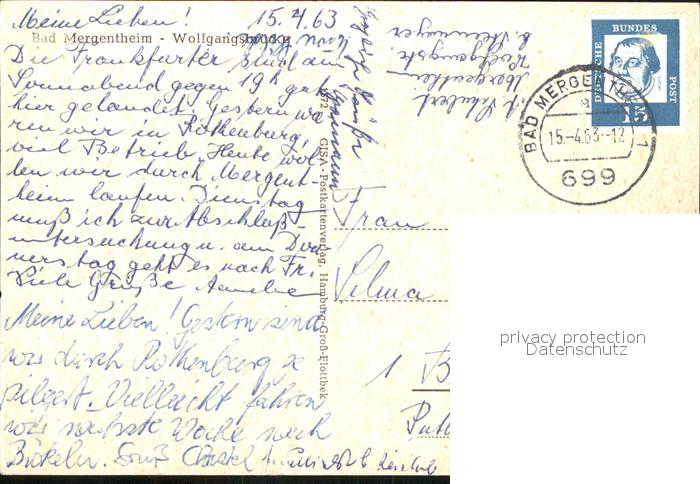 Meine Lieben! 15.4.63
Bad Mergentheim - Wolfgangsbrücke
Die Frankfurter sind am
Sonnabend gegen 19h gut
hier gelandet. Gestern wa
ren wir in Rothenburg,
viel Betrieb. Heute wol
len wir durch Mergent
heim laufen. Dienstag
muß ich zur Abschluß-
untersuchung u. am Don
nerstag geht es nach Fr.
Viele Grüße
Meine Lieben! Gestern sind
wir durch Rothenburg ge
pilgert. Vielleicht fahren
wir nächste Woche nach
Gruß
GISA-Postkartenverlag, Hamburg-Groß-Flottbek
Mergentheim
DEUTSCHE BUNDESPOST
15
BAD MERGENTHEIM 1
a
15.-4.63.-12
699
Frau
Selma
1 B
privacy protection
Datenschutz